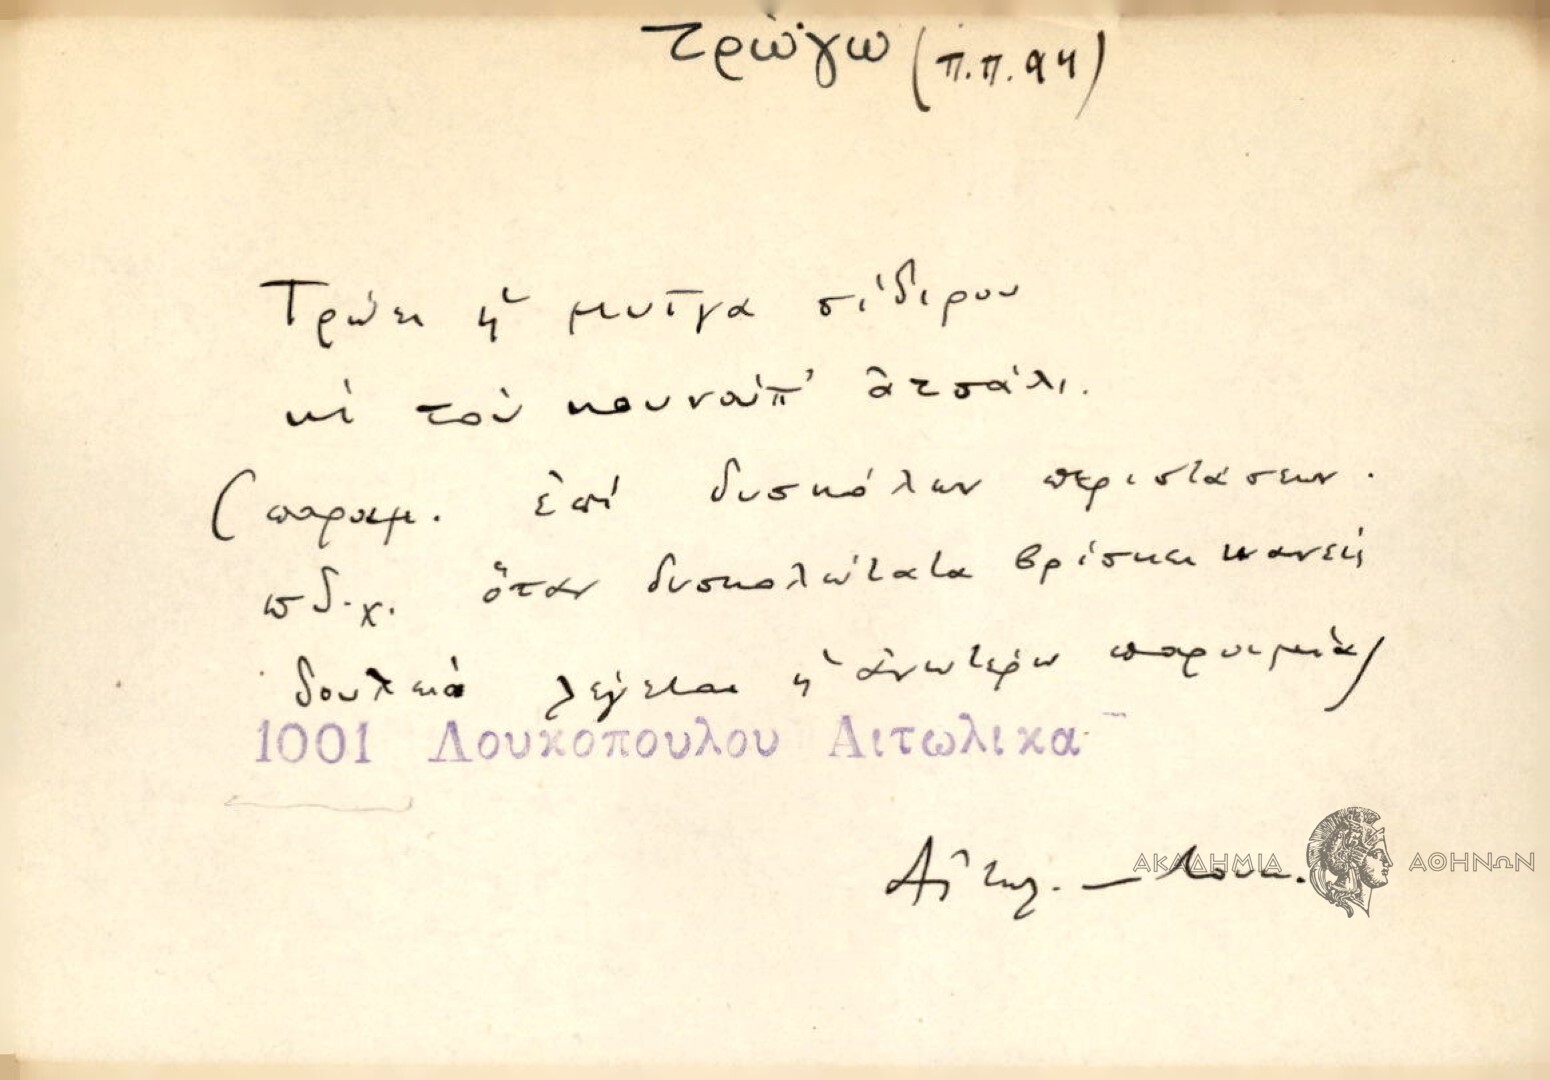 τρώγω (π.π. 94)
Τρώει ἡ μυῖγα σίδιρου
κὶ τοὺ κουνούπ' ἀτσάλι.
(παροιμ. ἐπὶ δυσκόλων περιστάσεων.
πδ.χ. ὅταν δυσκολώτατα βρίσκει κανεὶς
δουλειὰ λέγεται ἡ ἀνωτέρω παροιμία)
1001 Λουκοπουλου Αιτωλικα
Αἰτωλ. — Λουκ.
ΑΚΑΔΗΜΙΑ ΑΘΗΝΩΝ